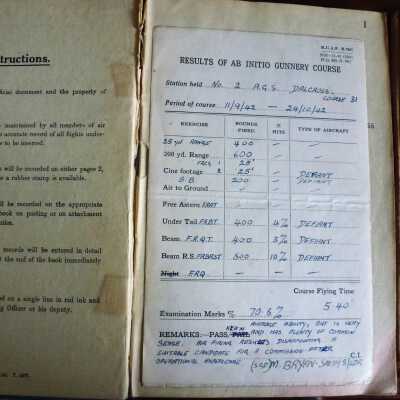 1
structions.
icial document and the property of
maintained by all members of air
accurate record of all flights under-
to be inserted.
will be recorded on either pages 2,
a rubber stamp is available.
will be recorded on the appropriate
book on posting or on attachment
records will be entered in detail
at the end of the book immediately
on a single line in red ink and
Officer or his deputy.
RESULTS OF AB INITIO GUNNERY COURSE
Station held No. 2 A.G.S. DALCROSS.
COURSE 31
Period of course 11/9/42 — 24/10/42
EXERCISE ROUNDS FIRED % HITS TYPE OF AIRCRAFT
25 yd. RANGE 400 — —
200 yd. Range 600 — —
1 25' —
Cine footage 2 25' — DEFIANT
200 — DEFIANT
Air to Ground — — —
Free Astern — — —
Under Tail 400 4% DEFIANT
Beam 400 5% DEFIANT.
Beam R.S. 10% DEFIANT.
Night — — —
Course Flying Time
5.40
Examination Marks % 70.5%
REMARKS:—PASS, FAIL
KEEN AVERAGE ABILITY, BUT IS VERY
AND HAS PLENTY OF COMMON
SENSE. AIR FIRING RESULTS DISAPPOINTING. A
SUITABLE CANDIDATE FOR A COMMISSION AFTER
OPERATIONAL EXPERIENCE.
C.I.